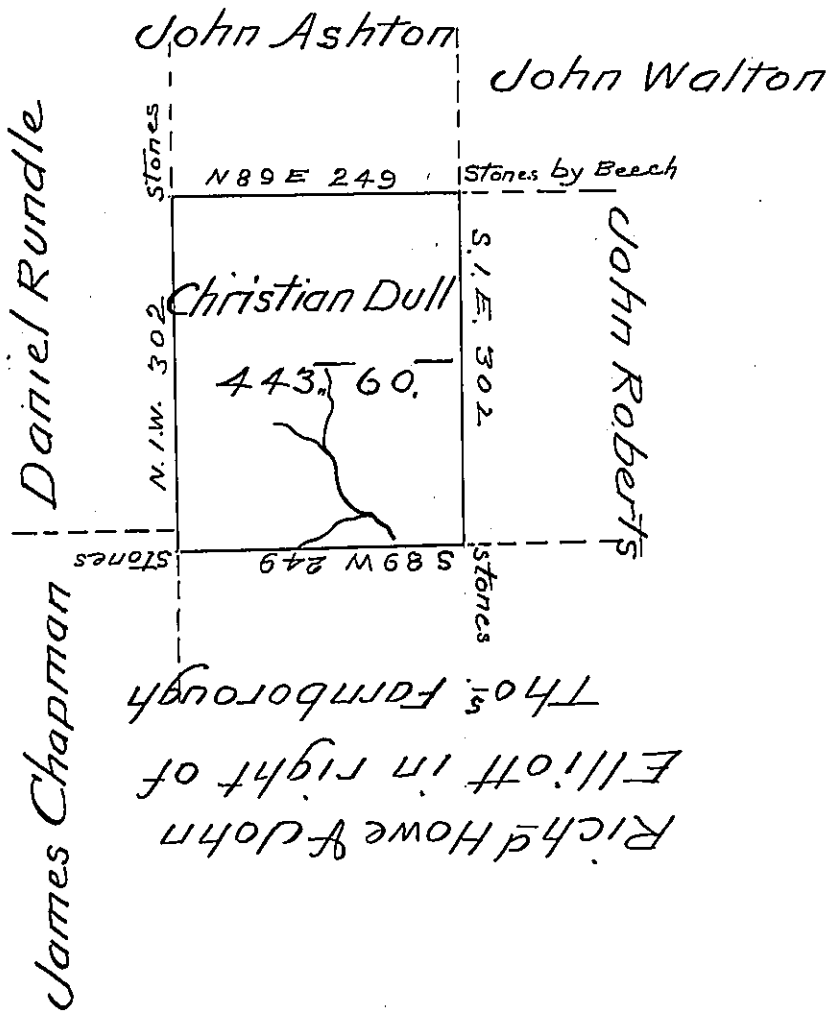 John Ashton
John Walton
Daniel Rundle
stones
N 89 E 249
Stones by Beech
John Roberts
N. 1. W. 302
Christian Dull
S. 1. E. 302
443,, 60.
stones
S 89 W 249
stones
James Chapman
Richd Howe & John
Elliott in right of
Thos. Farnborough